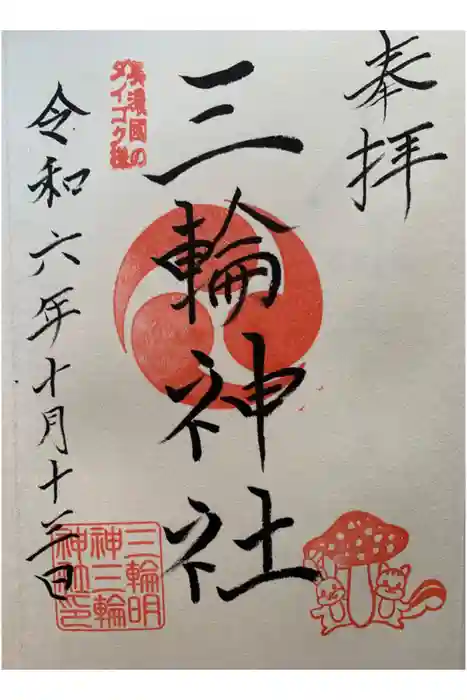 奉拝
美濃國の
ダイコク様
三輪神社
令和六年十月十三日
三輪明
神三輪
神社印